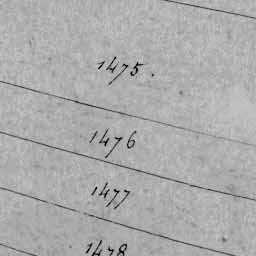 1475.
1476
1477
1478